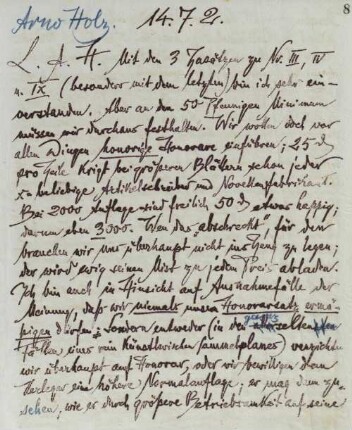 8
Arno Holz. 14.7.2.
L. A. H. Mit den 3 Zusätzen zu Nr. III, IV
u. IX (besonders mit dem letzten) bin ich sehr ein-
verstanden. Aber an den 50 Pfennigen Minimum
müssen wir durchaus festhalten. Wir wollen doch vor
allen Dingen honorige Honorare einführen; 25 d
pro Zeile kriegt bei größeren Blättern schon jeder
x-beliebige Artikelschreiber und Novellenfabrikant.
Bei 2000 Auflage sind freilich 50 d etwas happig;
darum eben 3000. Wen das „abschreckt", für den
brauchen wir uns überhaupt nicht ins Zeug zu legen;
der wird ewig seinen Mist zu jedem Preis abladen.
Ich bin auch in Hinsicht auf Ausnahmefälle der
Meinung, daß wir niemals unsern Honorarsatz ermä-
ßigen dürfen; sondern entweder (in den ganz seltenen
Fällen eines rein künstlerischen Sammelplanes) verzichten
wir überhaupt auf Honorar, oder wir bewilligen dem
Verleger eine höhere Normalauflage; er mag dann zu-
sehen, wie er durch größere Betriebsamkeit auf seine